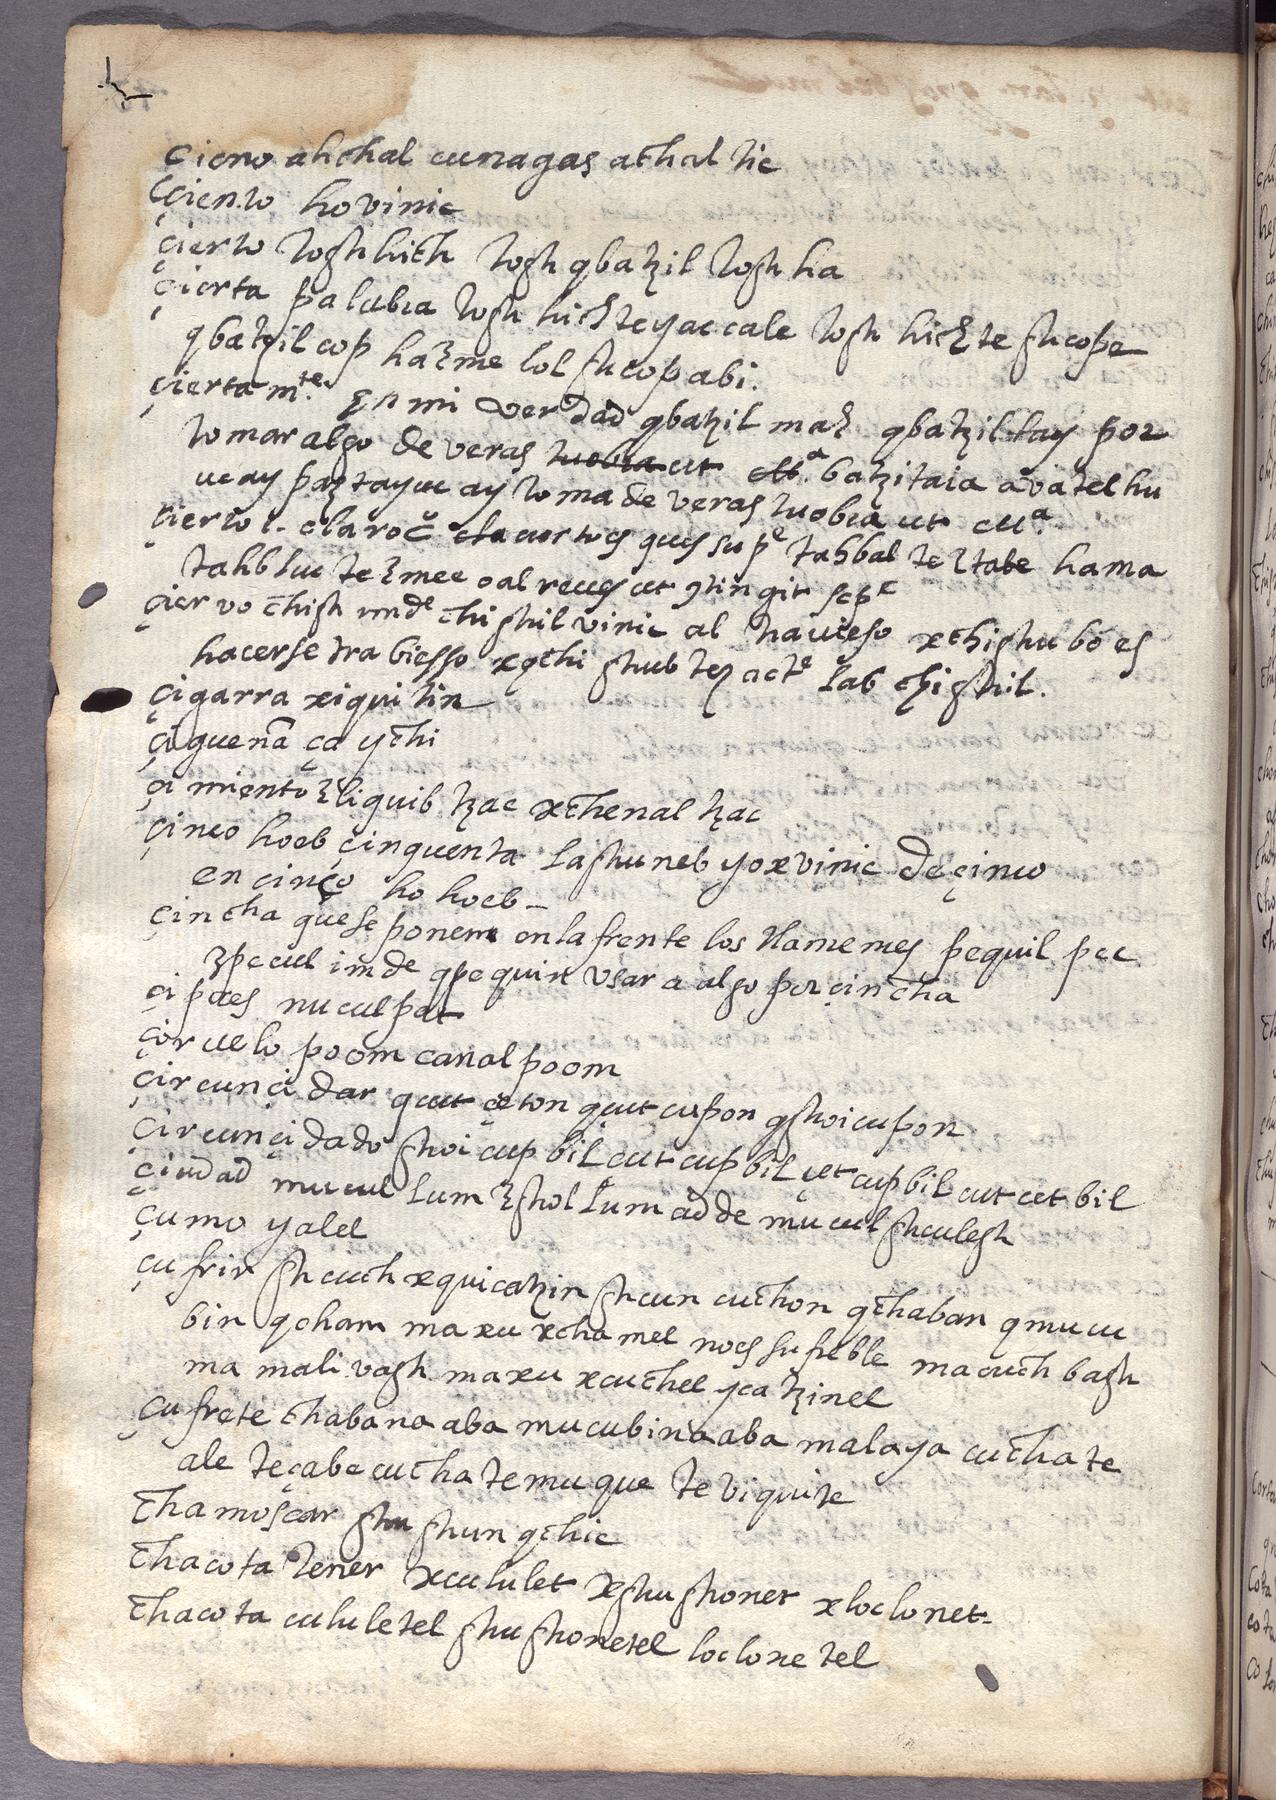 cieno ahchal cunagas achal tic
çiento hovinic
çierto toghhich togh qbatzil togh ha
çierta palabra togh hich teyaccale togh hich te ghcope
qbatzil cop hachme lol ghcopabi.
çiertamte. en mi verdad qbatzil mach qbatzil lay por
tomar algo de veras batzitaia avatelhu
ucay paztayuc ay toma de veras tuobra ut
çierto l. claro tahbal te hama
oal reces ut
çiervo chigh chighil vinic al travieso xchighubo es
hacerse trabiesso xqchi ghub lab chighil.
çigarra xiquitin
çigueña ça ychi
çimiento chliquib tzac xchenal tzac
çinco hoeb çinquenta laghuneb yoxvinic de çinco
en çinço ho hoeb
çincha que se ponem en la frente los tlamemes pequil pec
ypecul imde qpequin usar a algo por çincha
çipres nuculpat
çiruelo poom canal poom
çircunçidar qcut çeton qcut cupon qghoicupon
çircunçidado ghoi cup bil cut cup bil çet cup bil cut cet bil
çiudad mucul lum ghol lum adde mucul ghculegh
çumo yalel
çufrir gh cuch xquicotzin ghcun cuchon qchaban qmucu
bin qcham maxu xchamel noes sufrible macuch bagh
ma mali vagh maxu xcuchel ycatzinel
çufrete chabana aba mucubina aba malaya cucha te
ale teçabe cucha te muque te viquite
chamoscar ghun qchic
chacota tener xcululet xghughonet xloclonet
chacota cululetel ghughonetel loclonetel